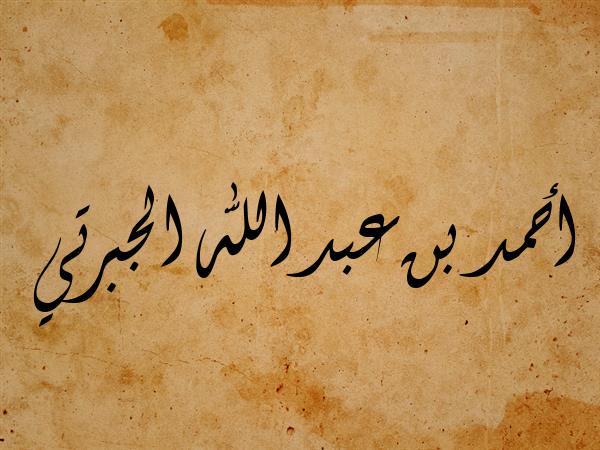 أحمد بن عبد الله الجبرتي